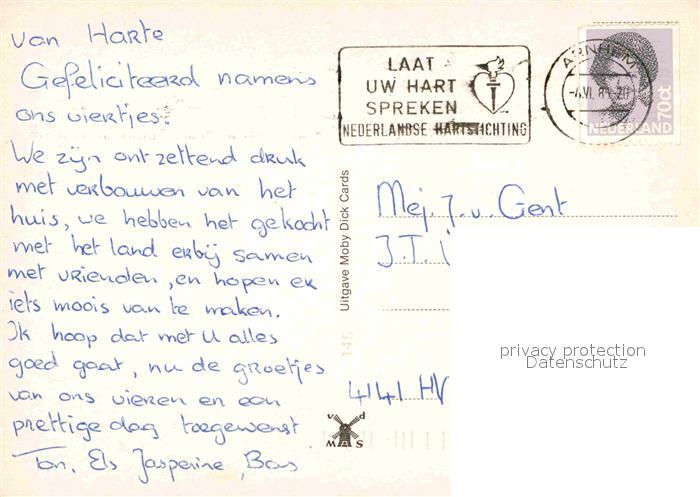 van Harte
Gefeliciteerd namens
ons viertjes.
We zijn ontzettend druk
met verbouwen van het
huis, we hebben het gekocht
met het land erbij samen
met vrienden, en hopen er
iets moois van te maken.
Ik hoop dat met U alles
goed gaat, nu de groetjes
van ons vieren en een
prettige dag toegewenst
Ton, Els Jasperine, Bas
Uitgave Moby Dick Cards
145
v d
MAS
LAAT
UW HART
SPREKEN
NEDERLANDSE HARTSTICHTING
ARNHEM
NEDERLAND 70ct
Mej. J. v. Gent
J.T.
4141 HV
privacy protection
Datenschutz